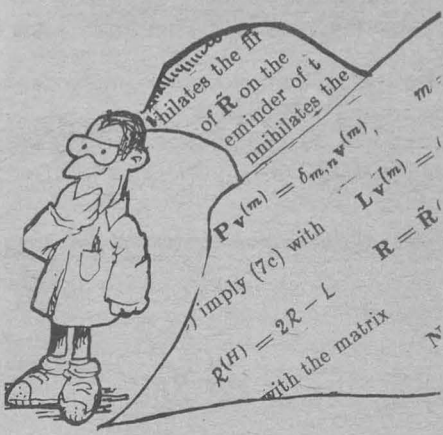 hilates the fir
of R̃ on the
eminder of t
nnihilates the
m
P v^(m) = δ_m,n v^(m),
L v^(m) =
) imply (7c) with
R = R̃
R^(H) = 2R − L
with the matrix
N